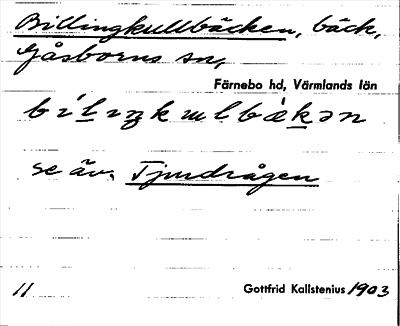 Billingkullbäcken, bäck,
Gåsborns sn,
Färnebo hd, Värmlands län
bílıŋkɯlbäkən
se äv. Tjurdrågen
11
Gottfrid Kallstenius 1903